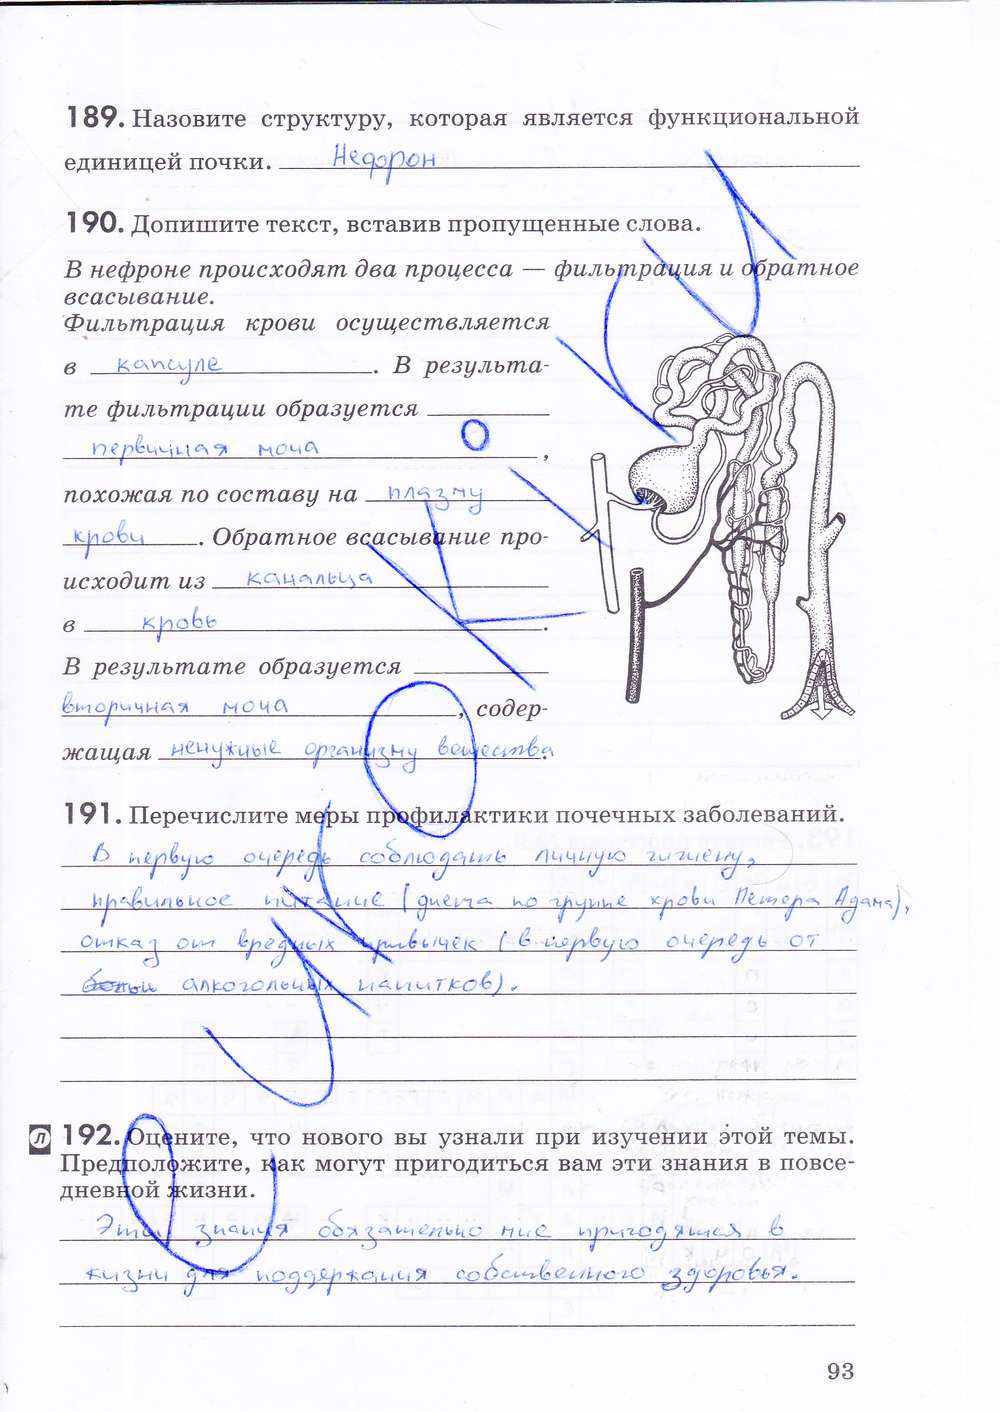 189. Назовите структуру, которая является функциональной
единицей почки. Нефрон
190. Допишите текст, вставив пропущенные слова.
В нефроне происходят два процесса — фильтрация и обратное
всасывание.
Фильтрация крови осуществляется
в капсуле. В результа-
те фильтрации образуется
первичная моча,
похожая по составу на плазму
крови. Обратное всасывание про-
исходит из канальца
в кровь.
В результате образуется
вторичная моча, содер-
жащая ненужные организму вещества.
191. Перечислите меры профилактики почечных заболеваний.
В первую очередь соблюдать личную гигиену,
правильное питание (диета по группе крови Петера Адама),
отказ от вредных привычек (в первую очередь от
алкогольных напитков).
Л 192. Оцените, что нового вы узнали при изучении этой темы.
Предположите, как могут пригодиться вам эти знания в повсе-
дневной жизни.
Эти знания обязательно мне пригодятся в
жизни для поддержания собственного здоровья.
93